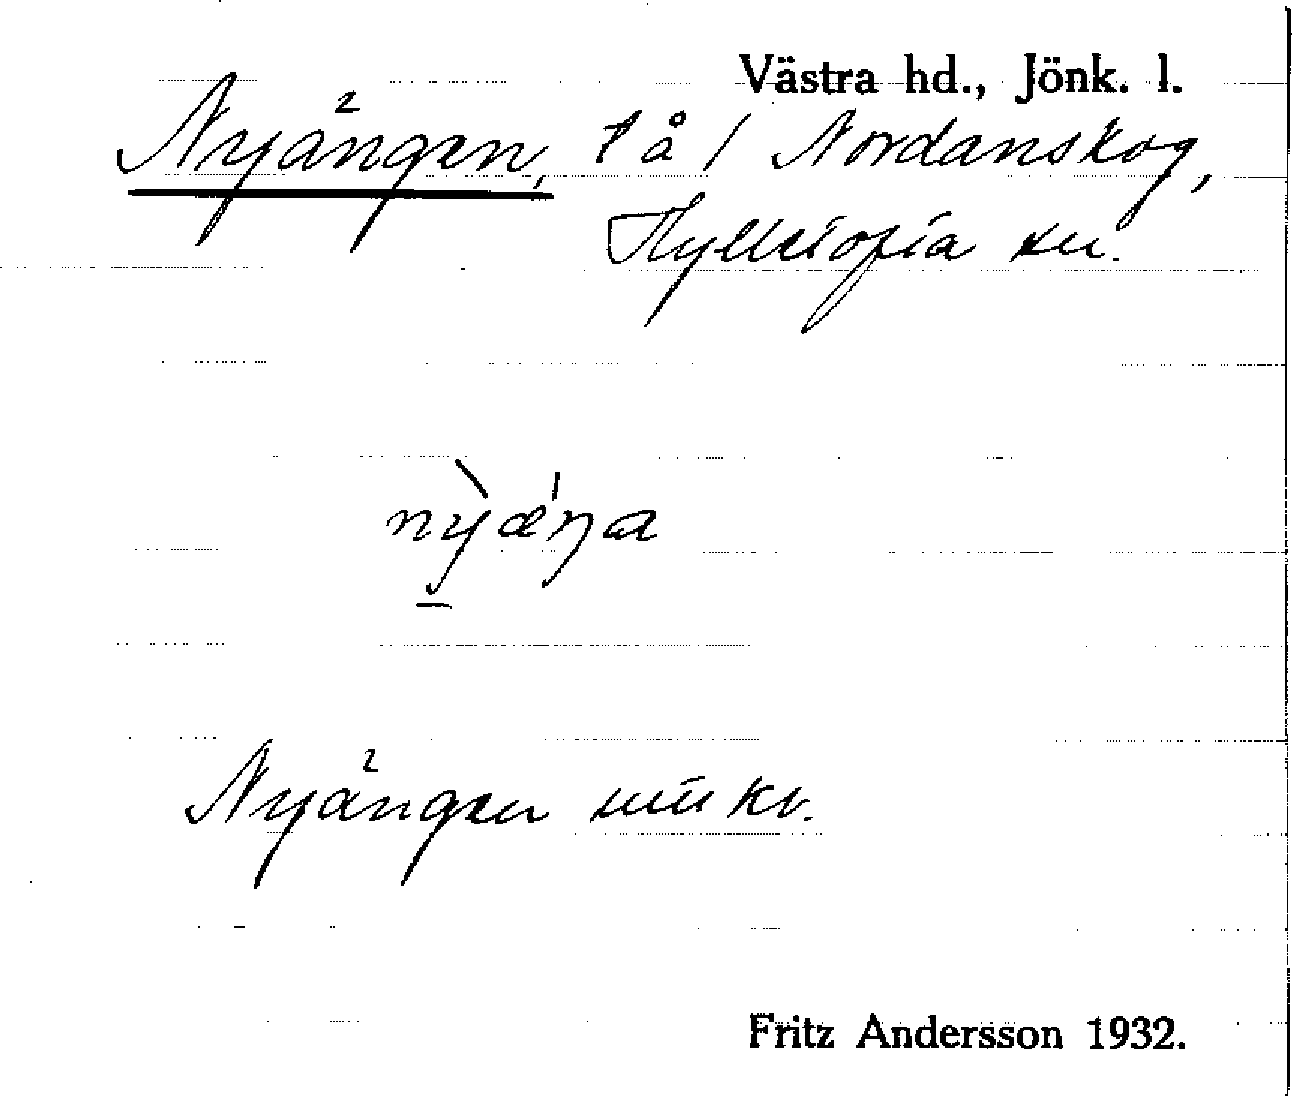 Västra hd., Jönk. l.
Nyängen, på / Nordanskog,
Hylletofta sn.
nỳ̱æ´ŋa
Nyängen mtkv.
Fritz Andersson 1932.